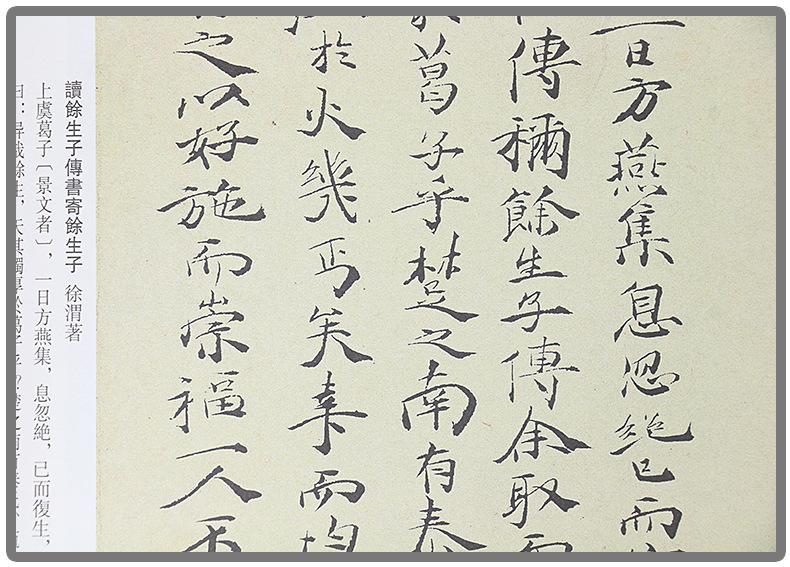 一日方燕集息忽絶已而
傳穪餘生子傳余取而
葛子乎楚之南有
於火幾丐矣幸而均
之以好施而崇福一人
讀餘生子傳書寄餘生子 徐渭著
上虞葛子〔景文者〕，一日方燕集，息忽絶，已而復生，